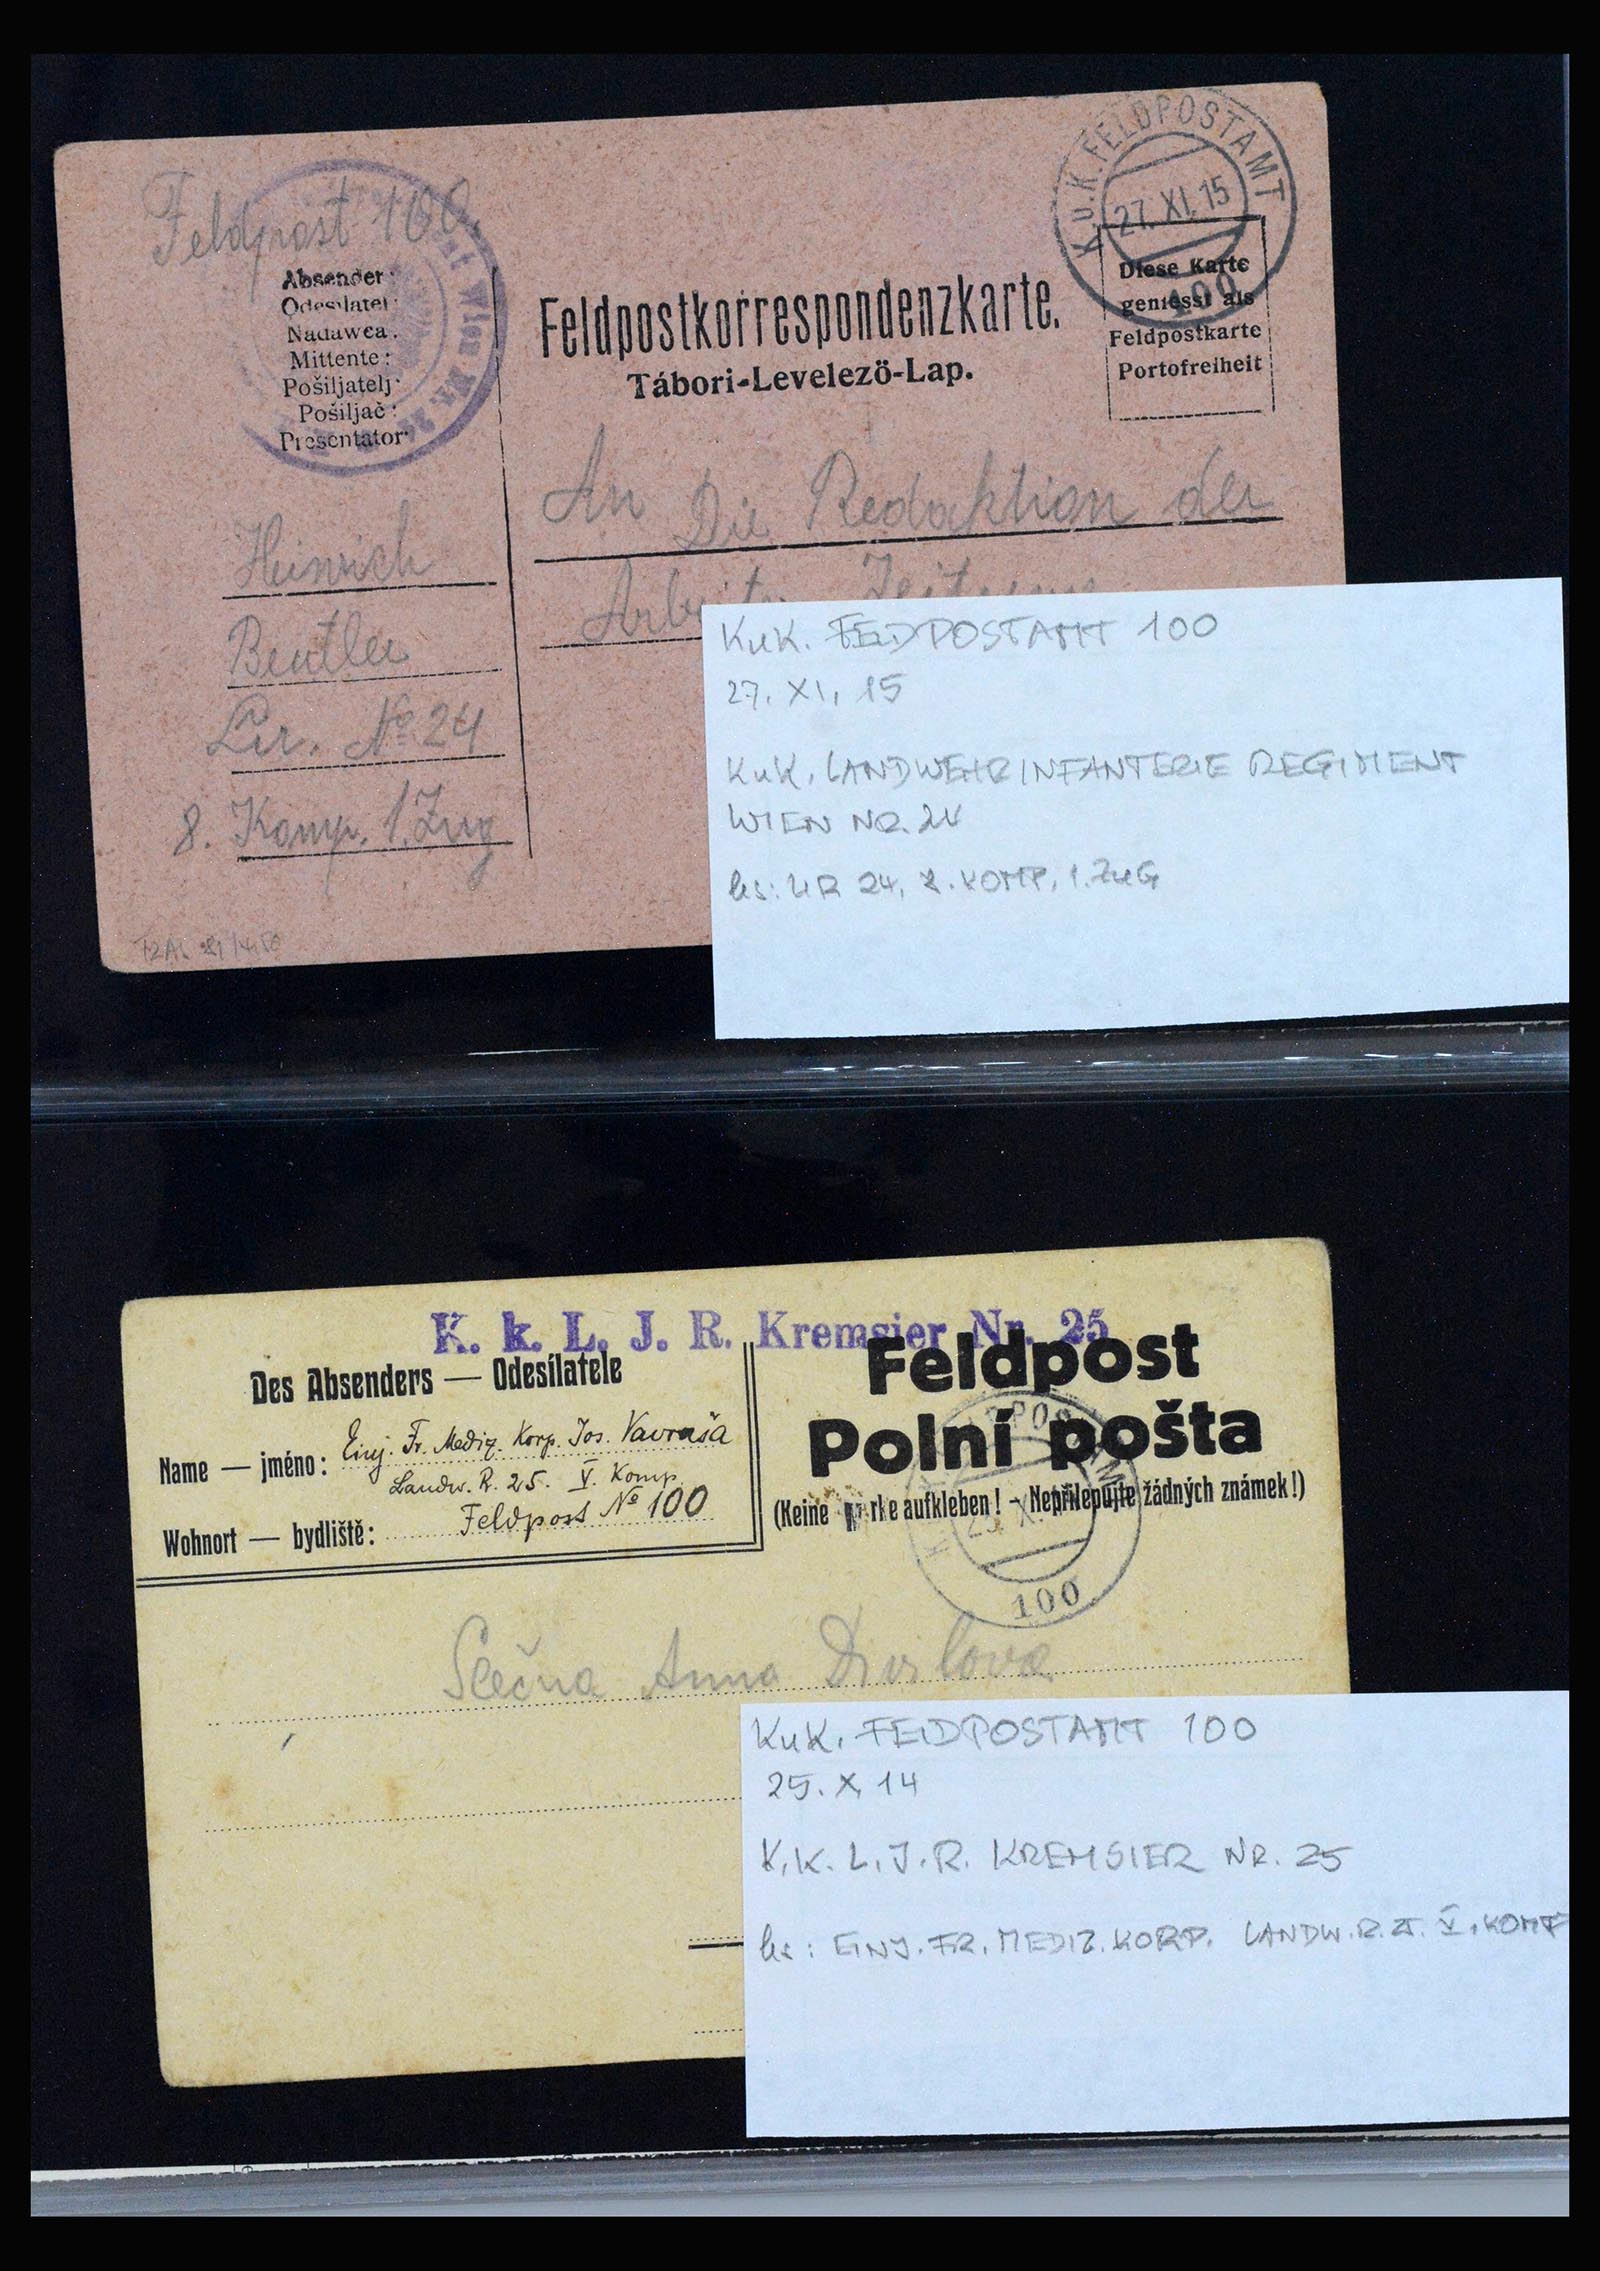 Feldpost 100.
K.u.K. FELDPOSTAMT
27. XI. 15
100
Absender:
Odesilatel:
Nadawca:
Mittente:
Pošiljatelj:
Pošiljač:
Presentator:
Wien Nr. 24
Feldpostkorrespondenzkarte.
Tábori-Levelező-Lap.
Diese Karte
geniesst als
Feldpostkarte
Portofreiheit
An Die Redaktion der
Arbeiter Zeitung
Heinrich
Beutler
Lir. № 24
8. Komp. 1. Zug
KuK. FELDPOSTAMT 100
27. XI. 15
KuK. LANDWEHRINFANTERIE REGIMENT
WIEN NR. 24
hs: LIR 24, 8. KOMP, 1. ZUG
K. k. L. J. R. Kremsier Nr. 25
Des Absenders — Odesílatele
Name — jméno: Einj. Fr. Mediz. Korp. Jos. Vavruša
Landw. R. 25. V. Komp.
Wohnort — bydliště: Feldpost № 100
Feldpost
Polní pošta
(Keine Marke aufkleben! - Nepřilepujte žádných známek!)
100
Slečna Anna
KuK. FELDPOSTAMT 100
25. X 14
K.K. L.J.R. KREMSIER NR. 25
hs: EINJ. FR. MEDIZ. KORP. LANDW. R. 25. V. KOMP